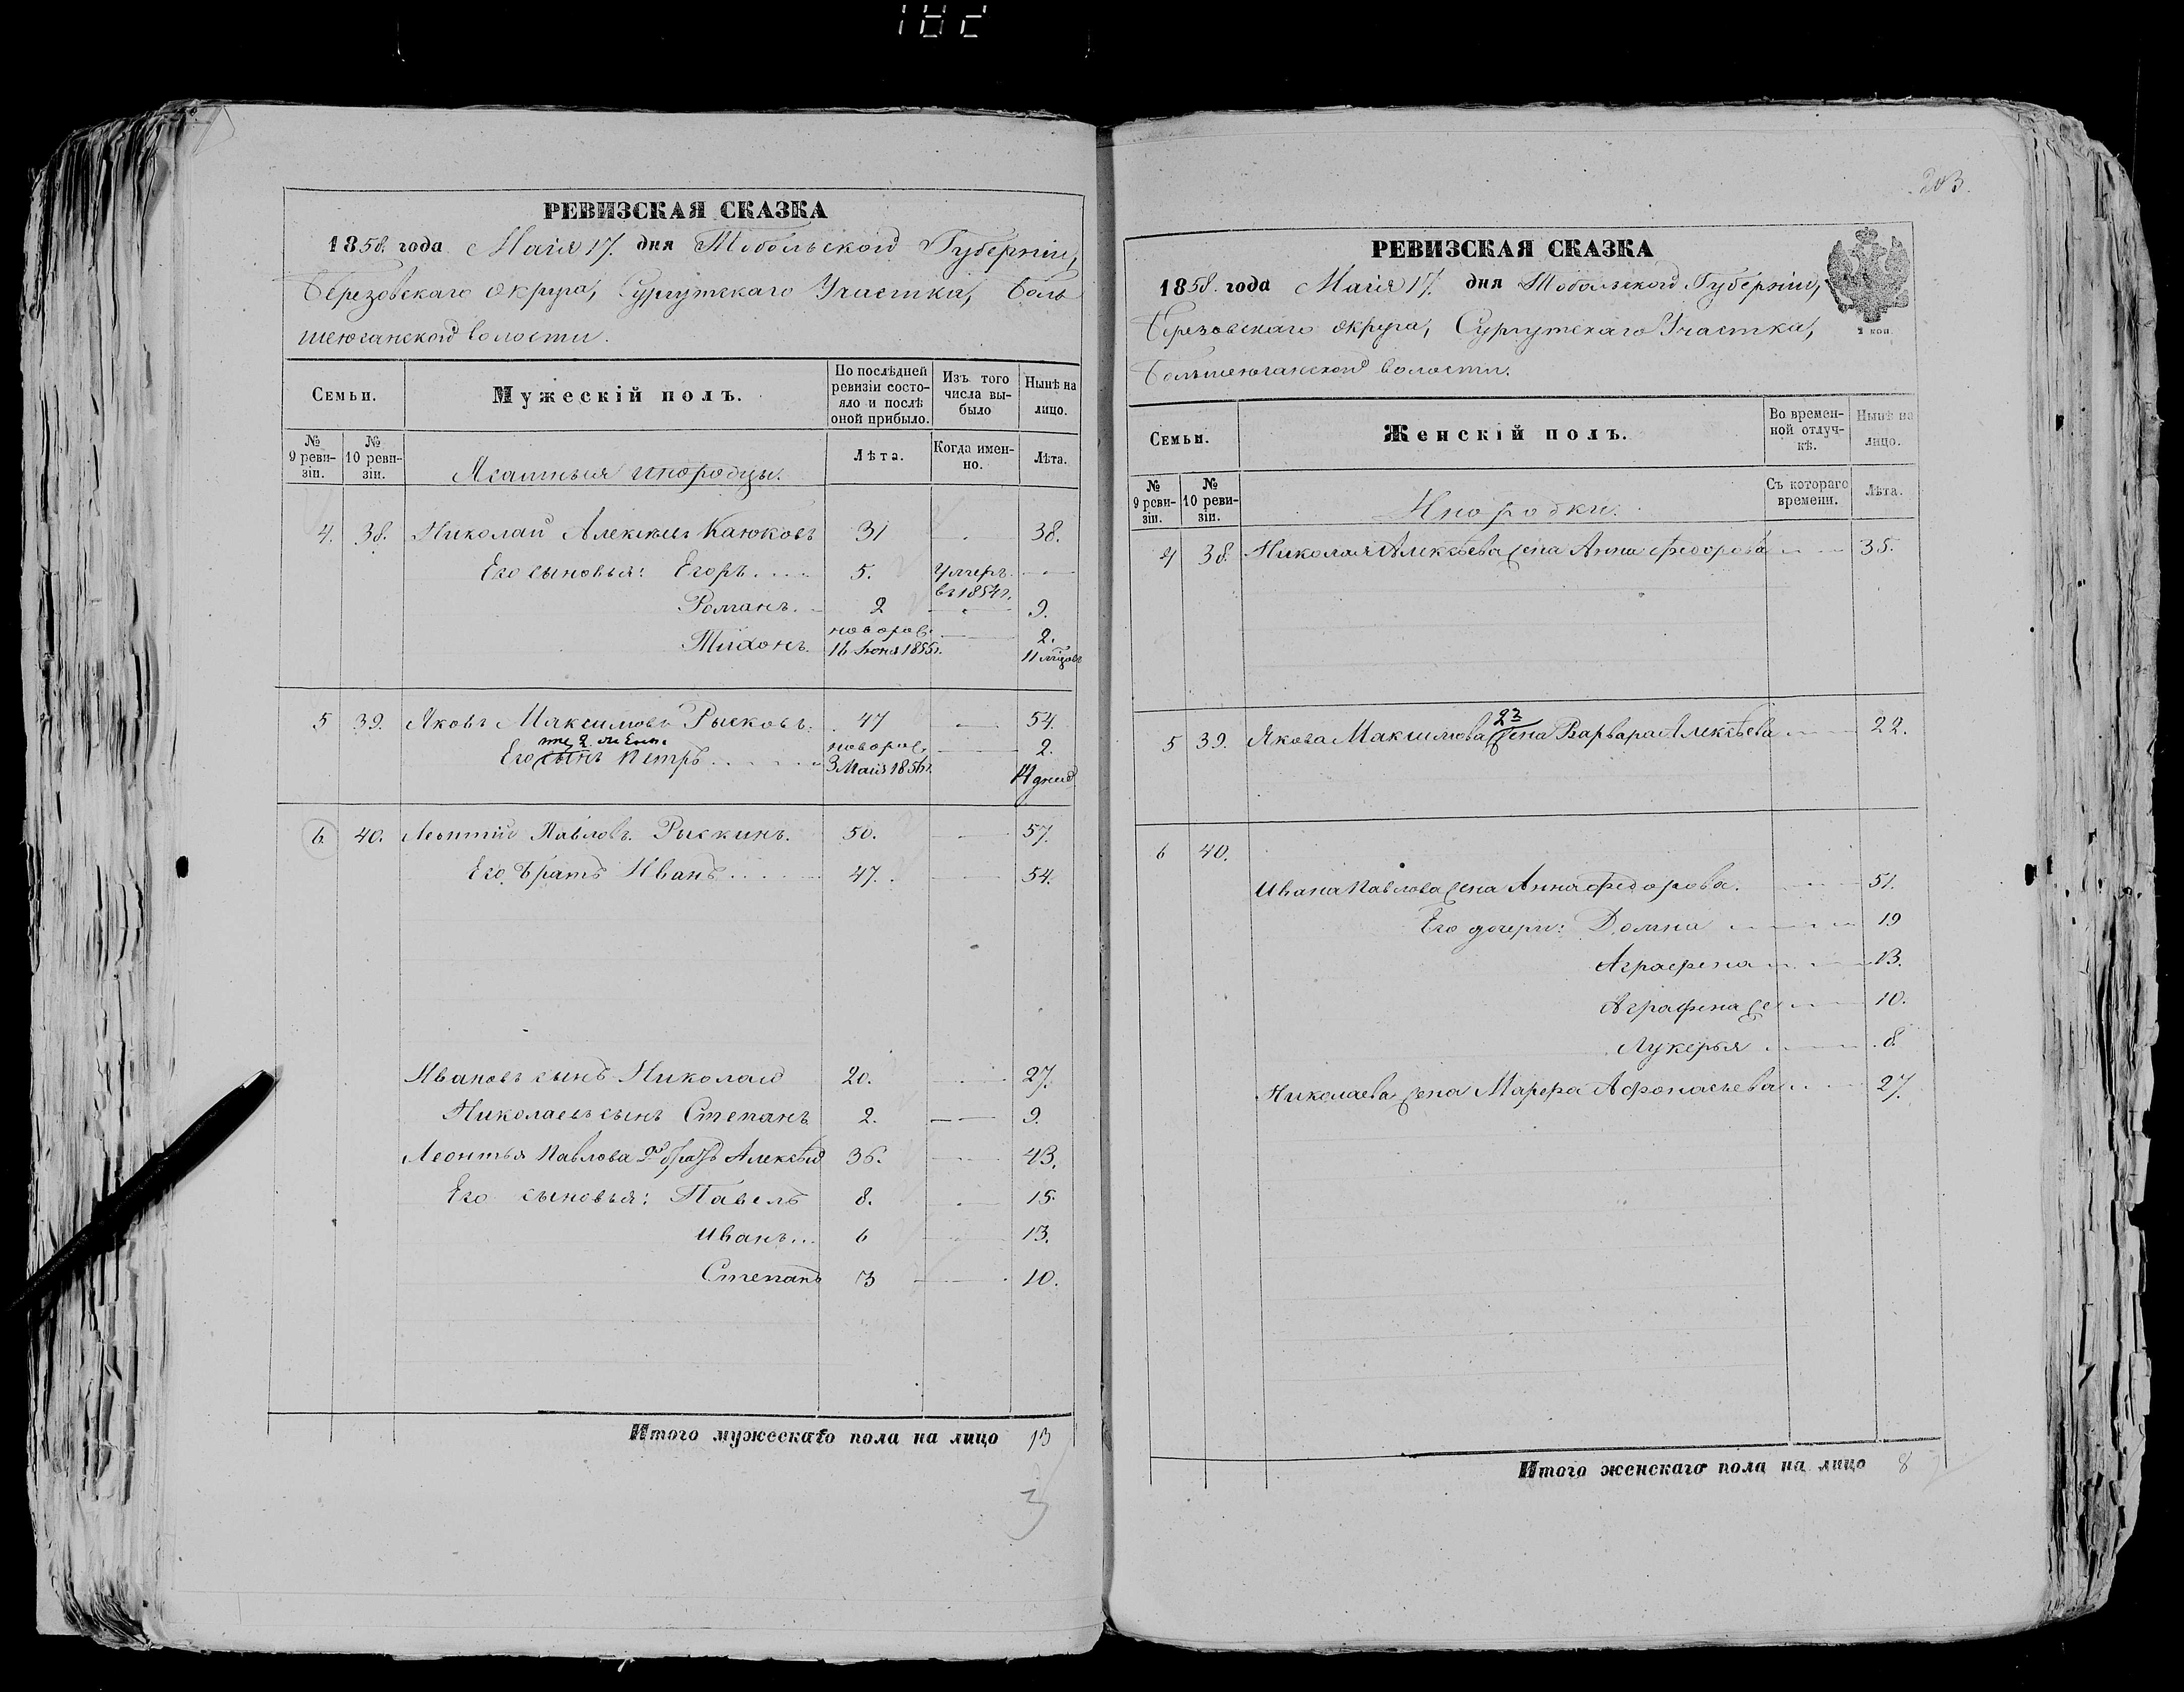 182
РЕВИЗСКАЯ СКАЗКА
1858. года Маія 17. дня Тобольской Губерніи,
Березовскаго округа, Сургутскаго Участка, Боль
шеюганской волости.
Семьи.
Мужескій полъ.
По послѣдней ревизіи состояло и послѣ оной прибыло.
Изъ того числа выбыло
Нынѣ на лицо.
№ 9 ревизіи.
№ 10 ревизіи.
Ясашныя инородцы.
Лѣта.
Когда именно.
Лѣта.
4. 38. Николай Алексѣевъ Каюковъ 31 38.
Его сыновья: Егоръ 5. Умеръ въ 1854г.
Романъ. 2 9.
Тихонъ. новорож. 16 Іюня 1855г. 2. 11 мѣсяц
5 39. Яковъ Максимовъ Рысковъ. 47 54.
отъ 2 жены
Его сынъ Петръ новорож. 3 Маія 1856г. 2. 14 дней
6. 40. Леонтій Павловъ Рыскинъ. 50. 57.
Его братъ Иванъ 47. 54.
Ивановъ сынъ Николай 20. 27.
Николаевъ сынъ Степанъ 2. 9.
Леонтья Павлова 2й братъ Алексѣй 36. 43.
Его сыновья: Павелъ 8. 15.
Иванъ 6 13.
Степанъ 3 10.
Итого мужескаго пола на лицо 13
3
203.
РЕВИЗСКАЯ СКАЗКА
1858. года Маія 17. дня Тобольской Губерніи,
Березовскаго округа, Сургутскаго Участка,
Большеюганской волости.
1 коп.
Семьи.
Женскій полъ.
Во временной отлучкѣ.
Нынѣ на лицо.
№ 9 ревизіи.
№ 10 ревизіи.
Инородки.
Съ котораго времени.
Лѣта.
4 38. Николая Алексѣева жена Анна Федорова 35.
5 39. Якова Максимова 2я жена Варвара Алексѣева 22.
6 40.
Ивана Павлова жена Анна Федорова. 51.
Его дочери: Домна 19
Аграфена 13.
Аграфена же 10.
Лукерья 8.
Николаева жена Марфа Афонасьева 27.
Итого женскаго пола на лицо 8